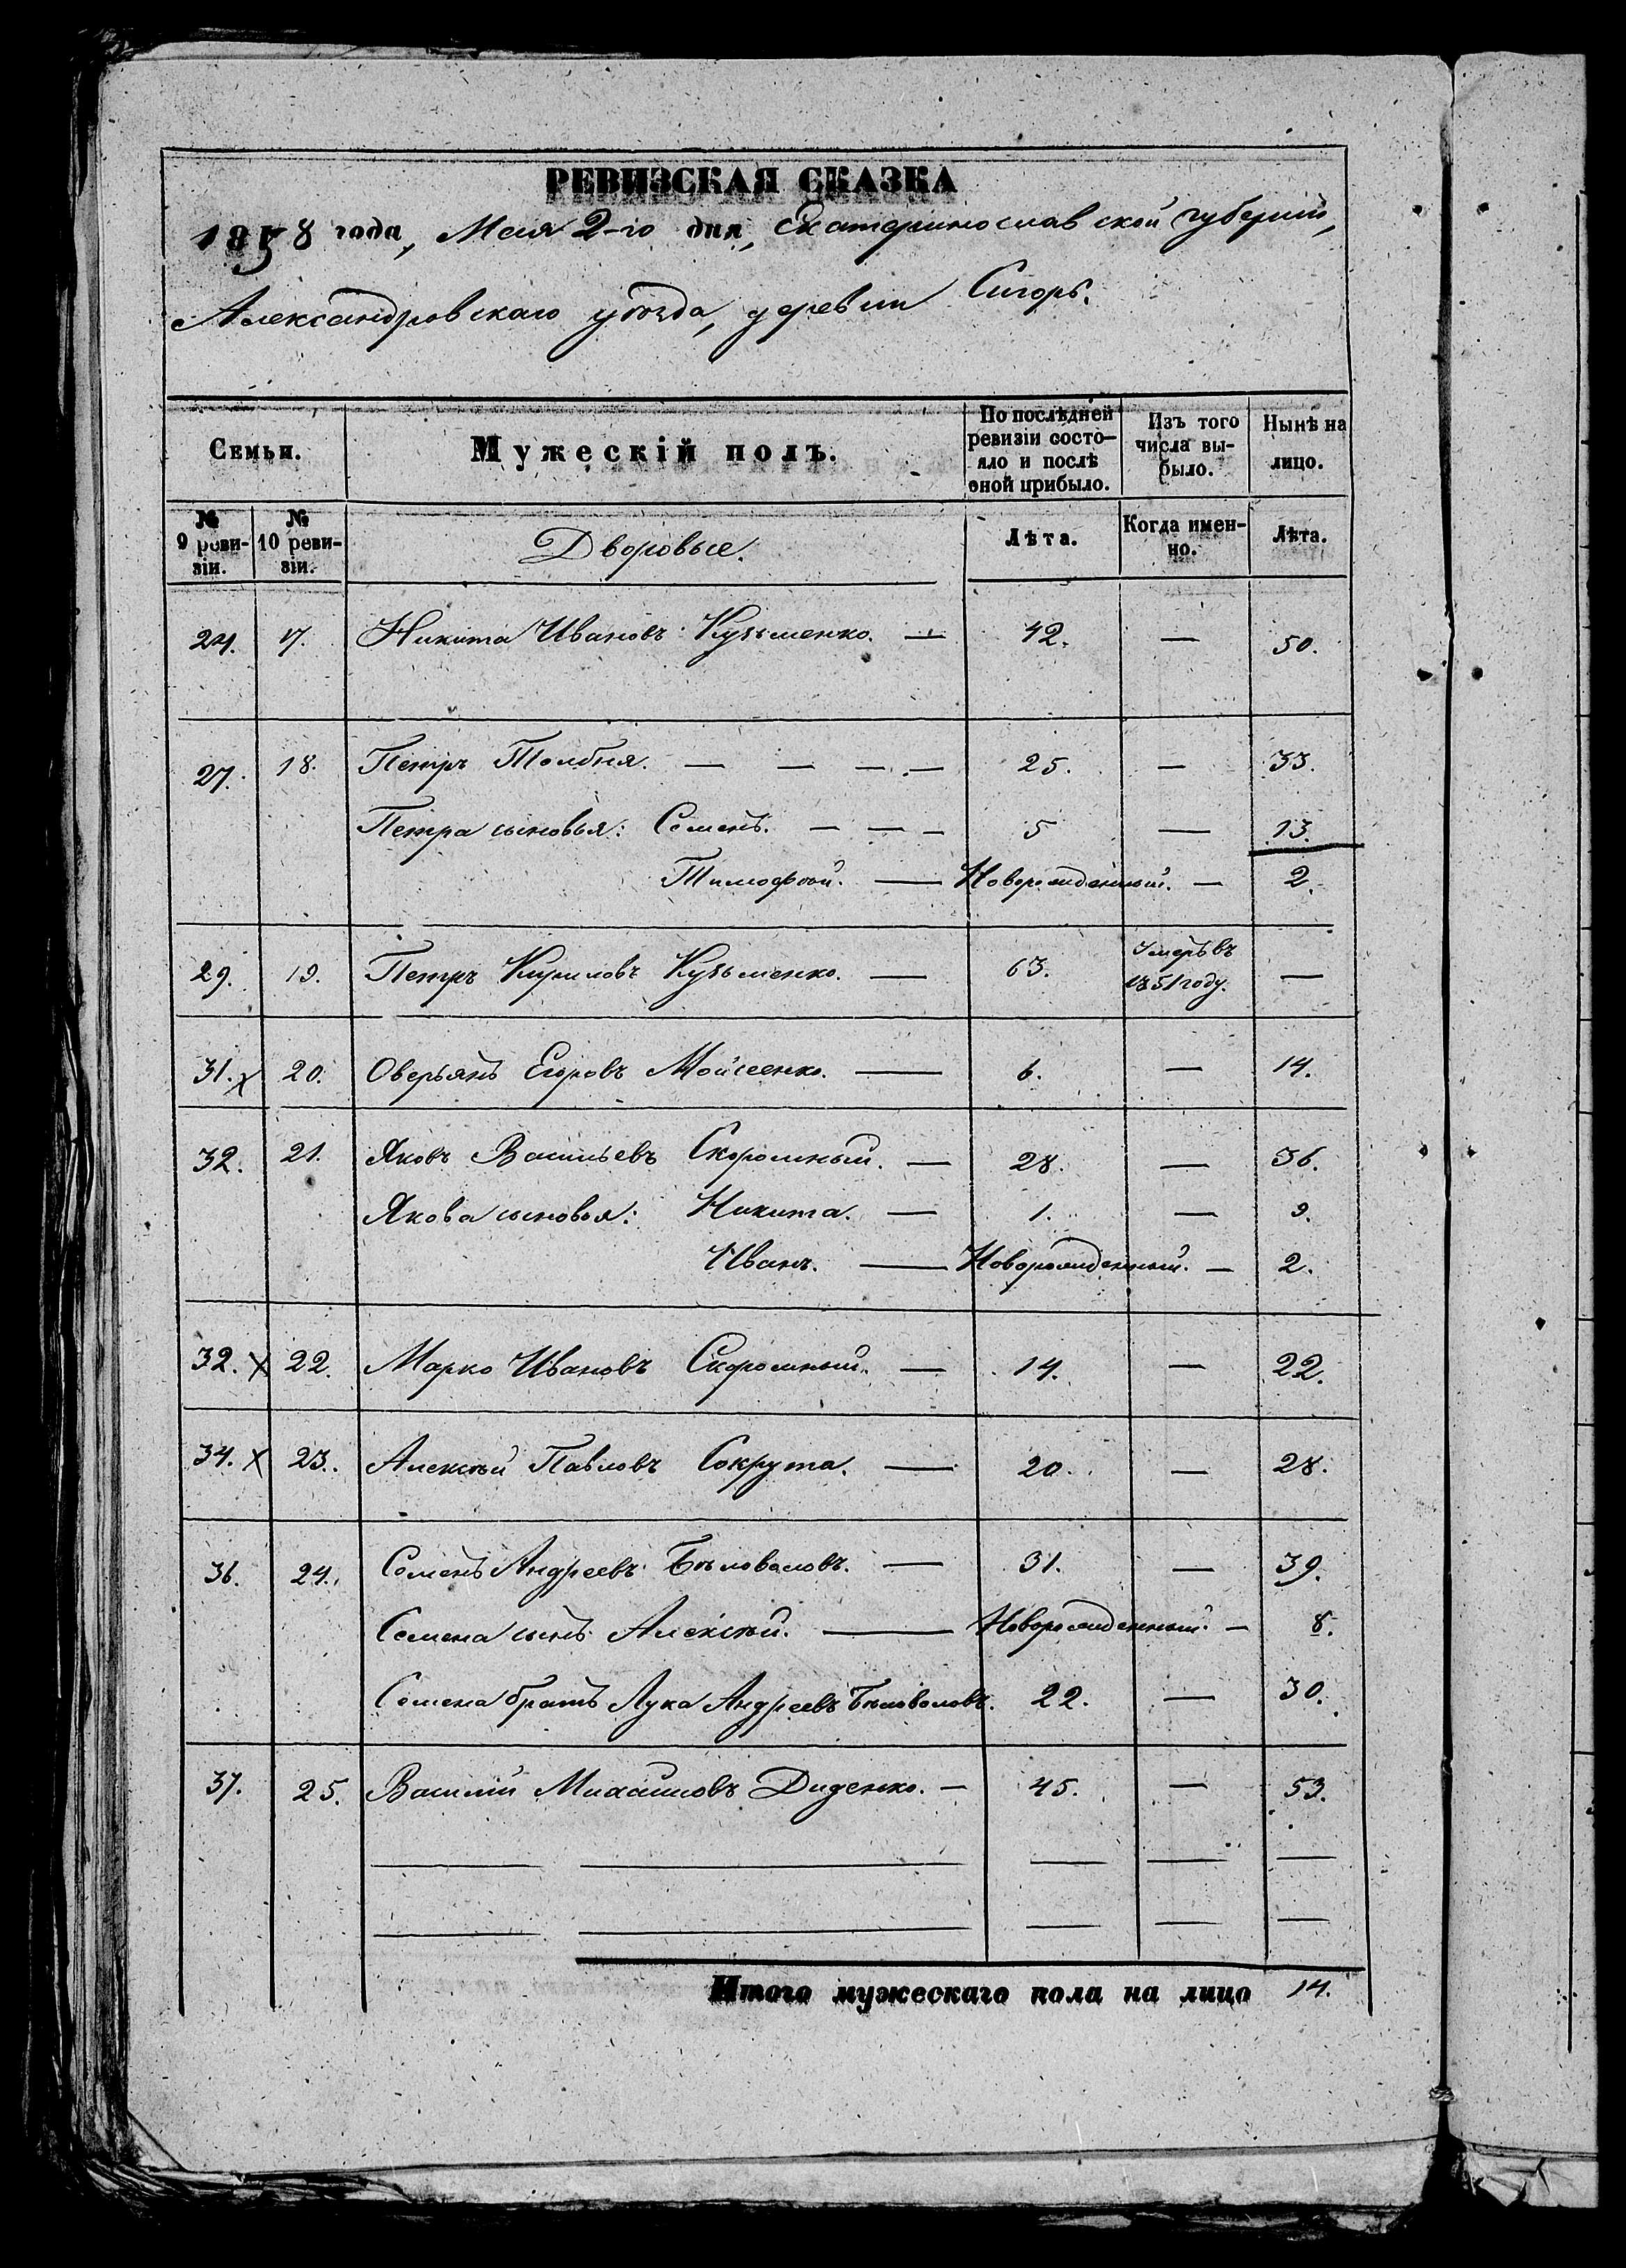 РЕВИЗСКАЯ СКАЗКА
1858 года, Мая 2-го дня, Екатеринославской губерніи,
Александровскаго уѣзда, деревни
Семьи. Мужескій полъ. По послѣдней ревизіи состояло и послѣ оной прибыло. Изъ того числа выбыло. Нынѣ на лицо.
№ 9 ревизіи. № 10 ревизіи. Дворовые. Лѣта. Когда именно. Лѣта.
24. 17. Никита Ивановъ Кузьменко. — 42. — 50.
27. 18. Петръ Толбня. — — — — 25. — 33.
Петра сыновья: Семенъ. — — — 5 — 13.
Тимофѣй. — Новорожденный. — 2.
29. 19. Петръ Кириловъ Кузьменко. — 63. Умеръ въ 1851 году. —
31. x 20. Оверьянъ Егоровъ Мойсеенко. — 6. — 14.
32. 21. Яковъ Васильевъ Скоромный. — 28. — 36.
Якова сыновья: Никита. — 1. — 9.
Иванъ. — Новорожденный. — 2.
32. x 22. Марко Ивановъ Скоромный. — 14. — 22.
34. x 23. Алексѣй Павловъ Сокрута. — 20. — 28.
36. 24. Семенъ Андреевъ Бѣловоловъ. — 31. — 39.
Семена сынъ Алексѣй. — Новорожденный. — 8.
Семена братъ Лука Андреевъ Бѣловоловъ. 22. — 30.
37. 25. Василій Михайловъ Диденко. — 45. — 53.
Итого мужескаго пола на лицо 14.